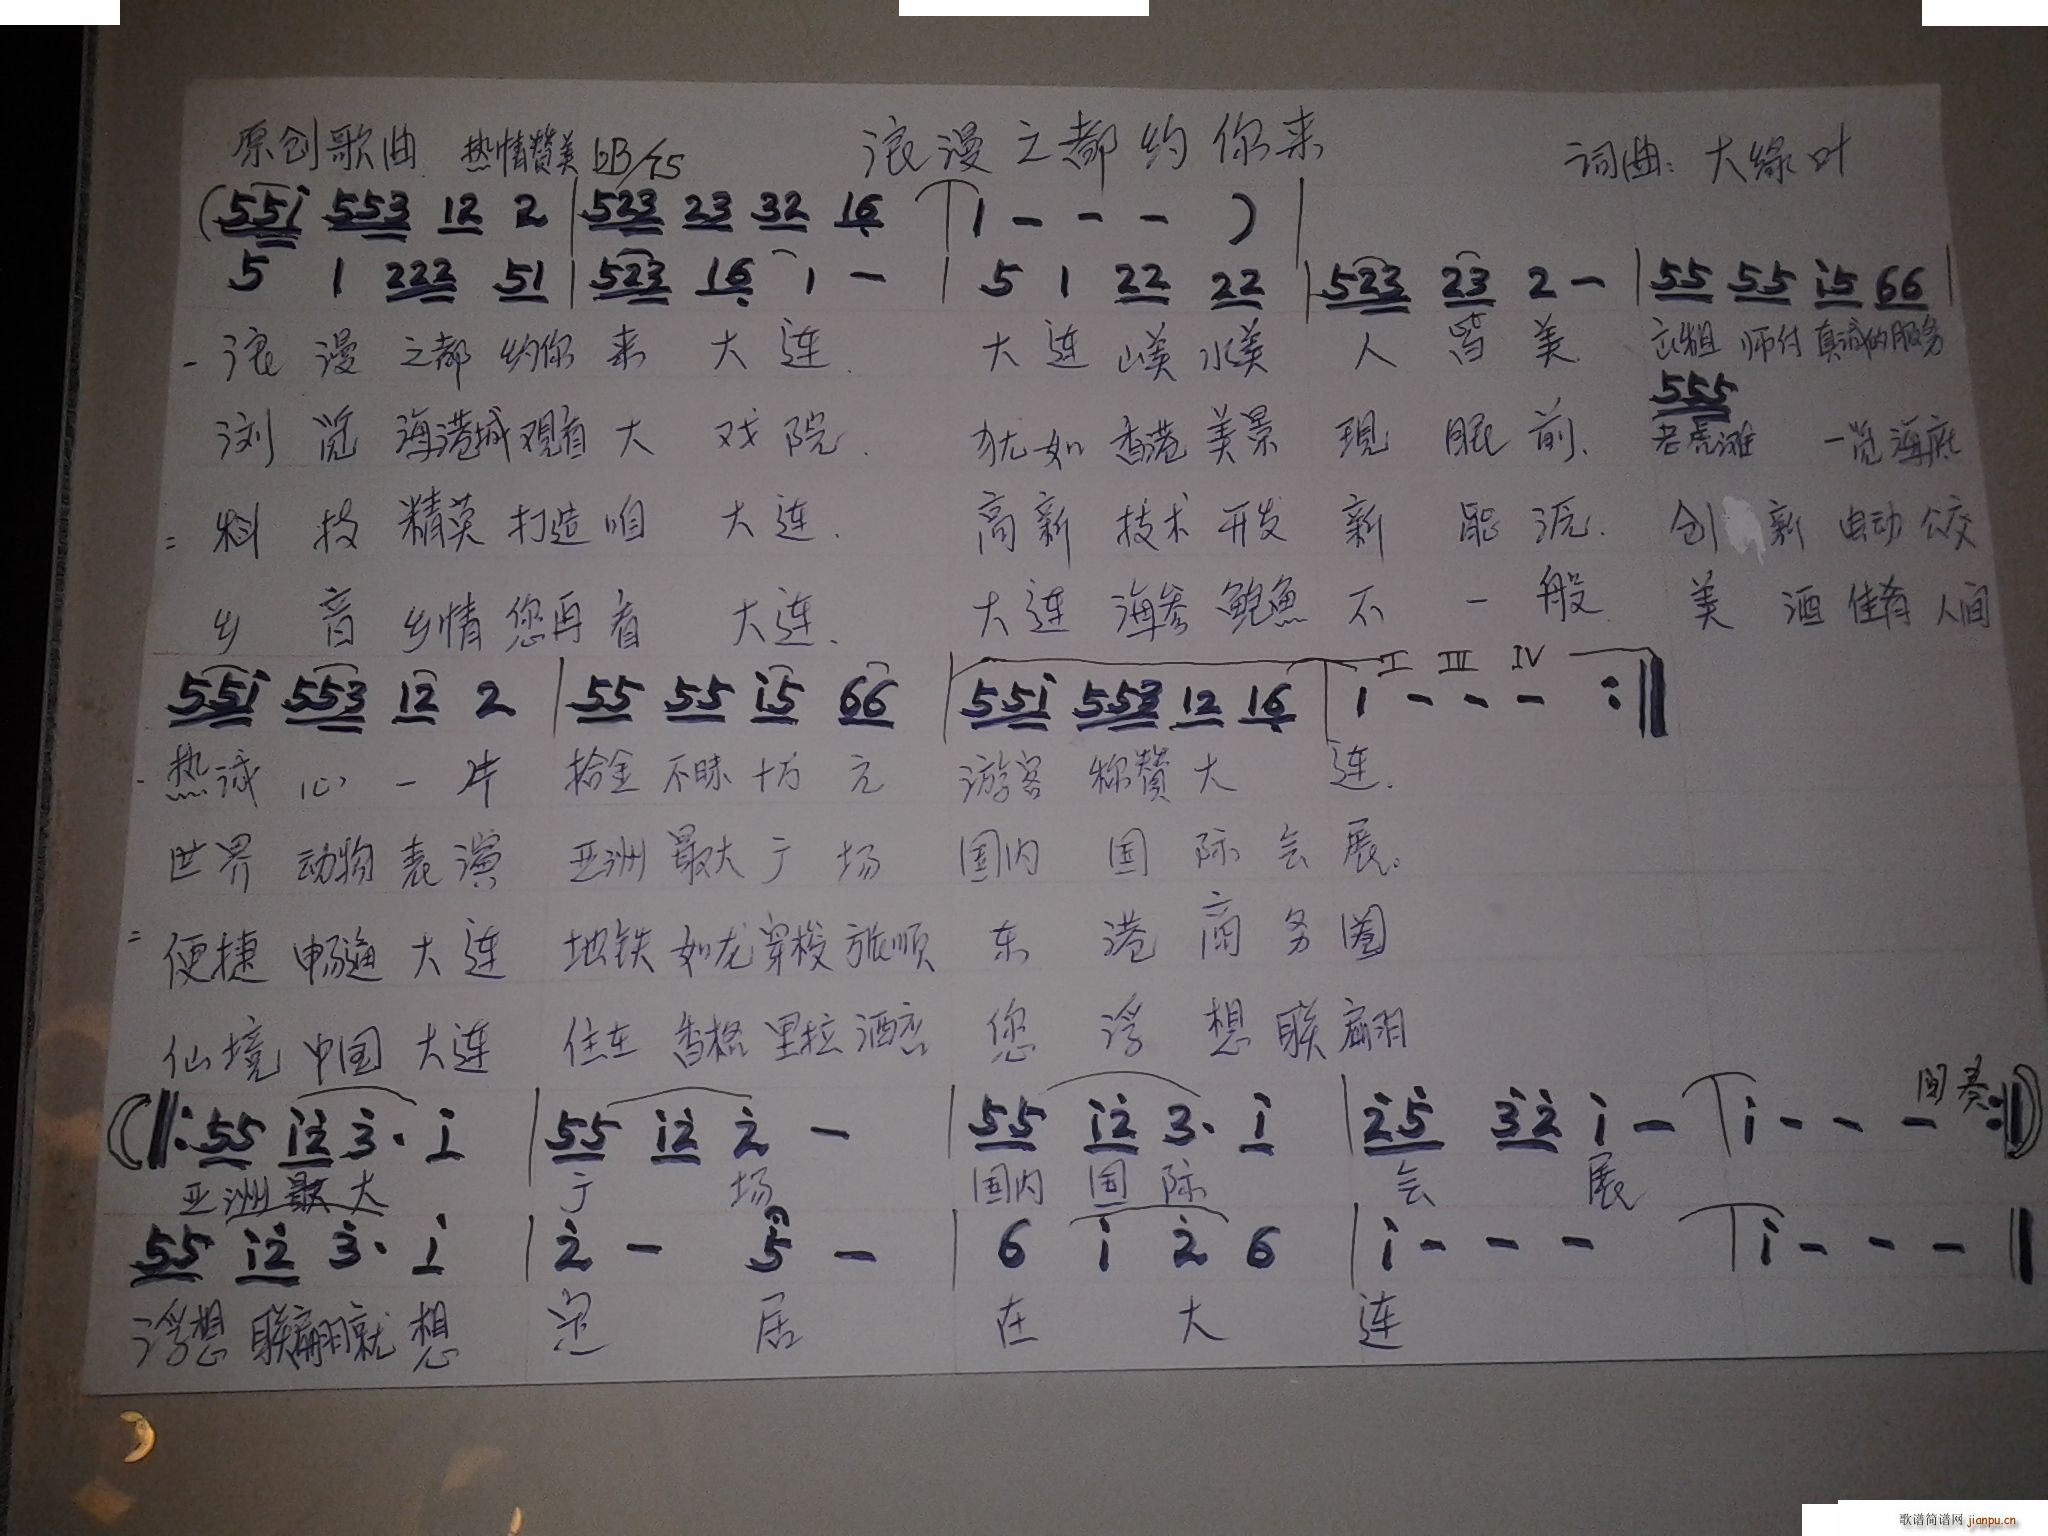 原创歌曲 热情赞美 bB/75 浪漫之都约你来 词曲: 大绿叶
(551 553 12 2 | 523 23 32 16 | 1 - - - ) |
5 1 222 51 | 523 16 1 - | 5 1 22 22 | 523 23 2 - | 55 55 i5 66 |
一浪漫之都约你来大连. 大连山美水美人皆美. 师付真诚的服务
555
浏览海港城观看大戏院. 犹如香港美景现眼前. 老虎滩 一览海底
= 科技精英打造咱大连. 高新技术开发新能源. 创新电动公交
乡音乡情您再看大连. 大连海参鲍鱼不一般 美酒佳肴人间
I III IV
55i 553 12 2 | 55 55 i5 66 | 55i 553 12 16 | 1 - - - :||
- 热诚心一片 拾金不昧十万元 游客称赞大连.
世界动物表演 亚洲最大广场 国内国际会展。
= 便捷畅通大连 地铁如龙穿梭旅顺 东港商务圈
仙境中国大连 住在香格里拉酒店 您浮想联翩
(||: 55 i2 3· i | 55 i2 2 - | 55 i2 3· i | 25 32 i - | i - - - 间奏 :||)
亚洲最大广场 国内国际会展
55 i2 3· i | 2 - 5 - | 6 i 2 6 | i - - - | i - - - ||
浮想联翩就想定居在大连
歌谱简谱网 jianpu.cn